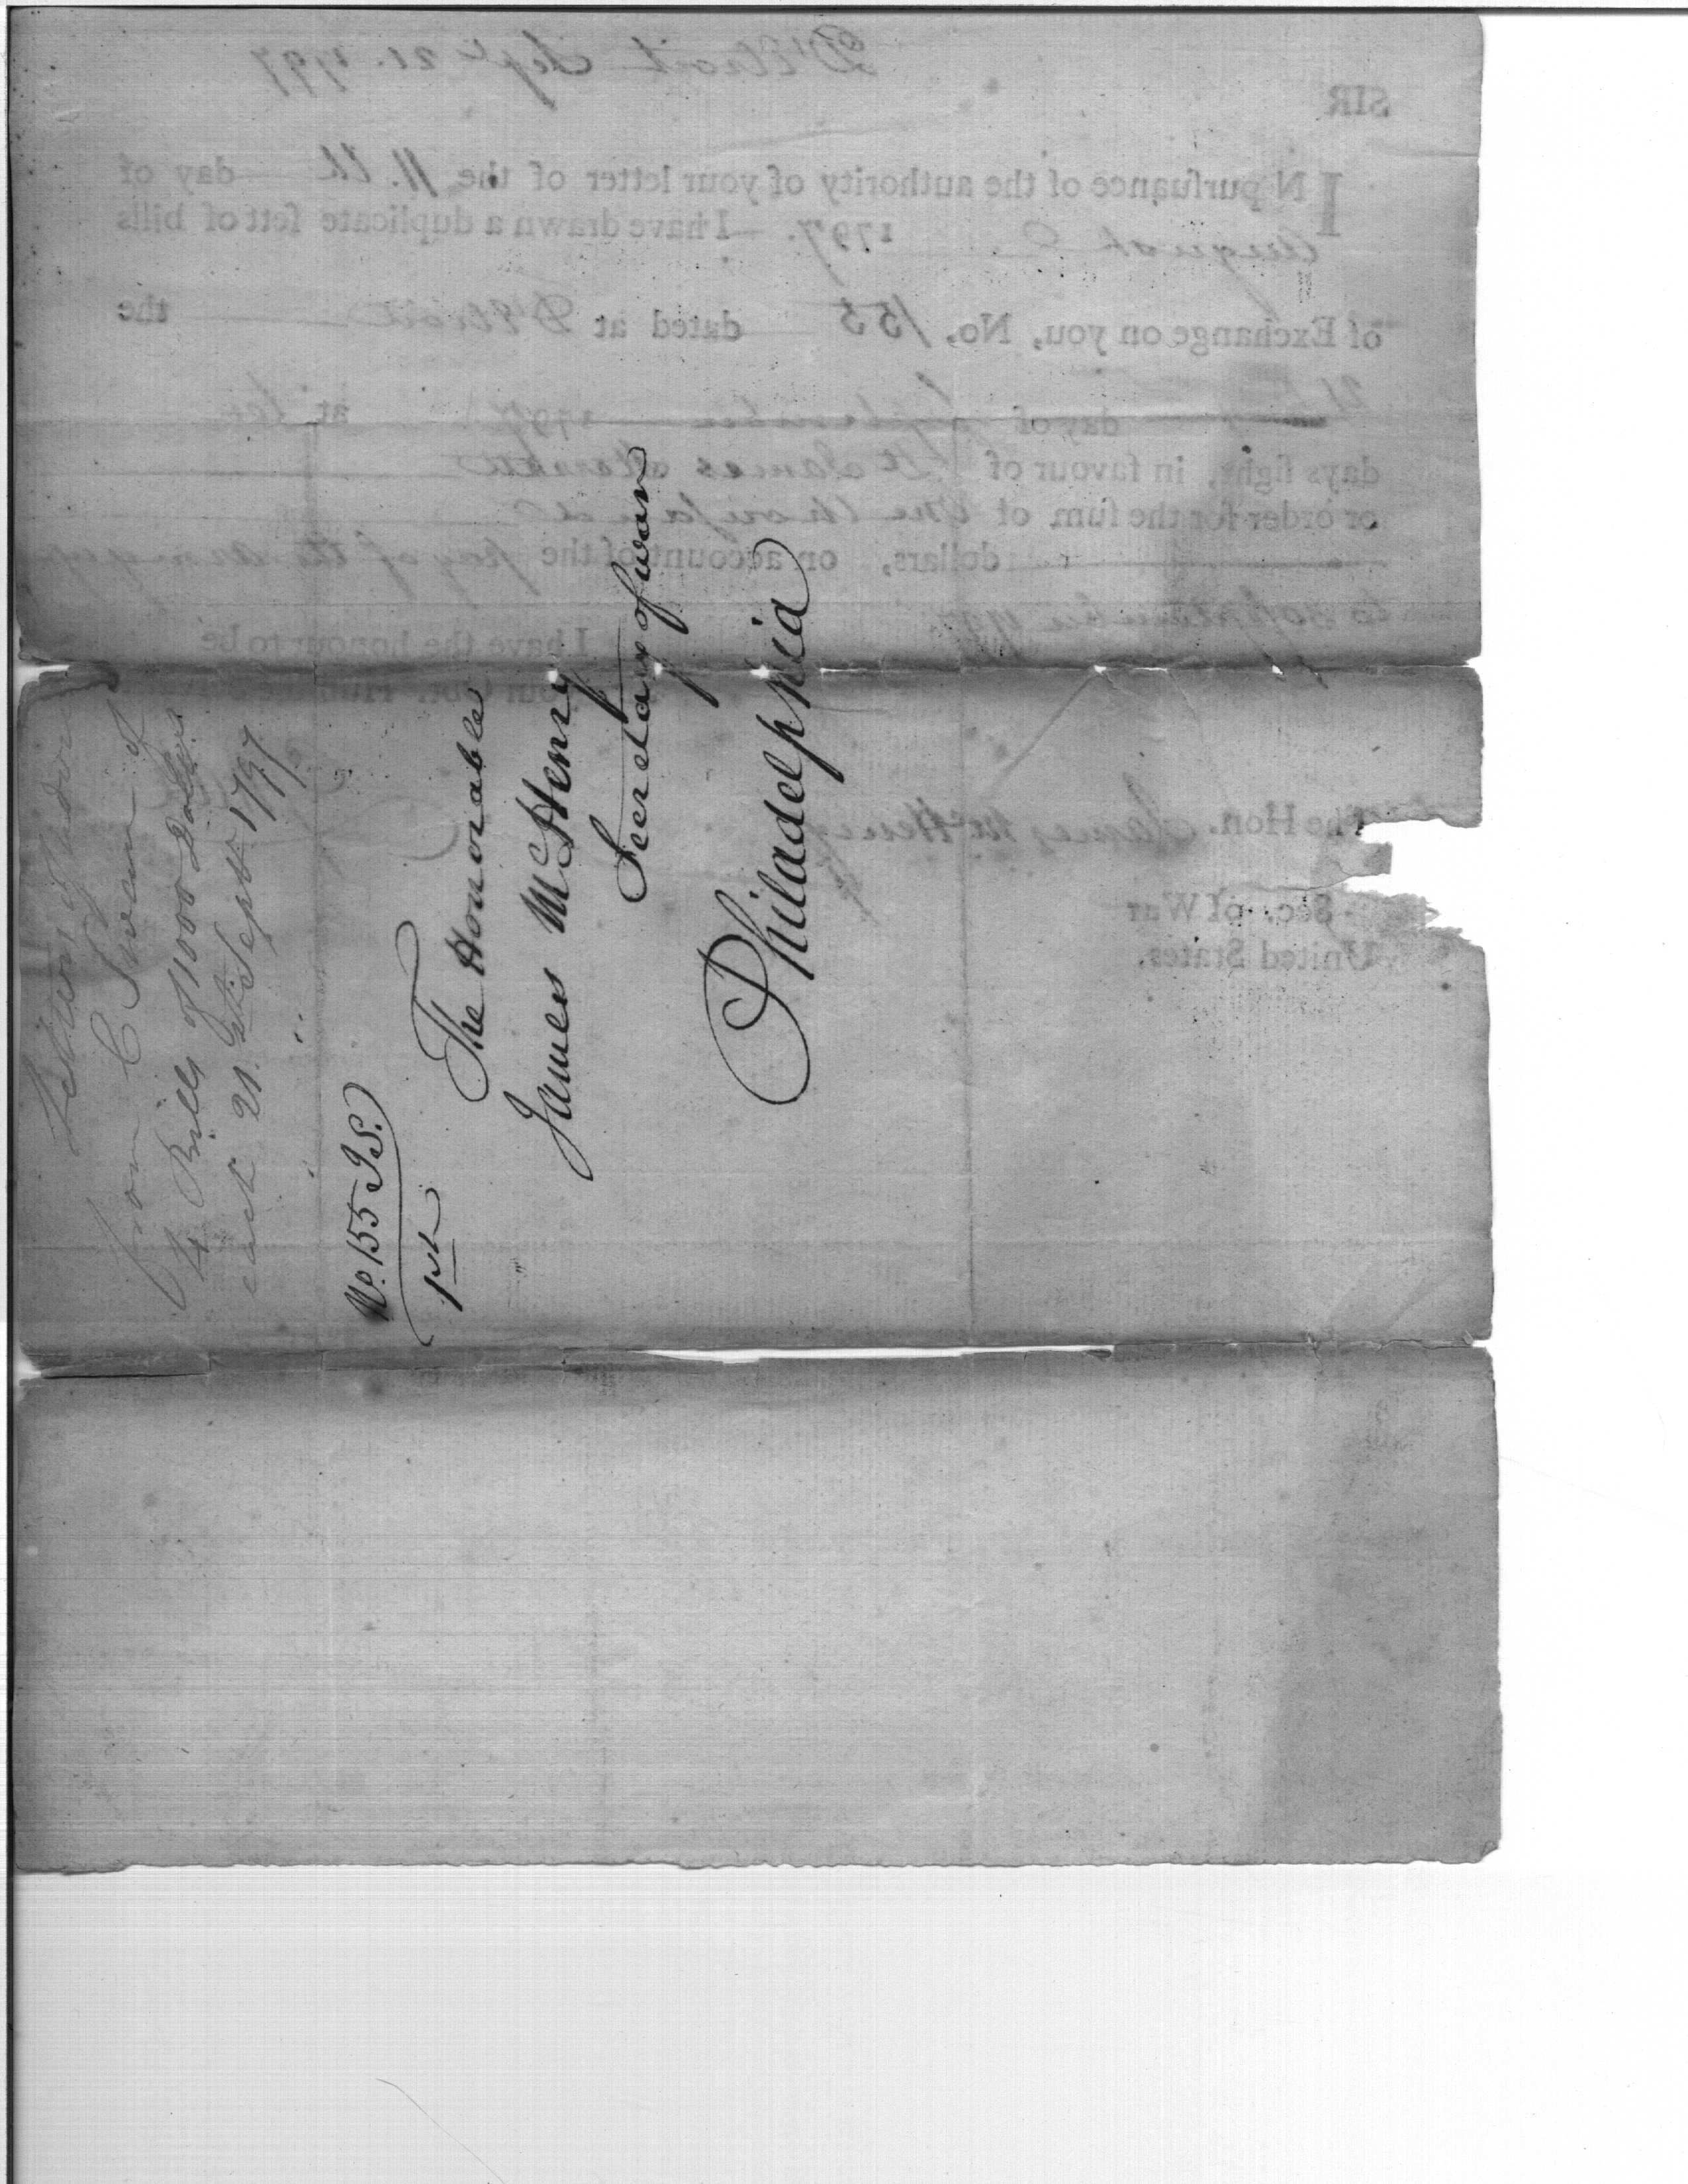 Letter of Advice
from C Swan of
4 Bills of 1000 Dollars
each 21st Sept 1797
No. 155 J S.
1st
The Honorable
James McHenry
Secretary of war
Philadelphia
D'Etroit Sept 21. 1797
SIR
IN purſuance of the authority of your letter of the 11.th day of
August 1797. I have drawn a duplicate ſett of bills
of Exchange on you, No. 155 dated at D'Etroit the
21st day of September 1797 at ten
days ſight, in favour of Lt James Sterrett
or order for the ſum of One thouſand
dollars, on account of the pay of the army
to September 1797
I have the honour to be
The Hon. James McHenry
Sec. of War
United States.